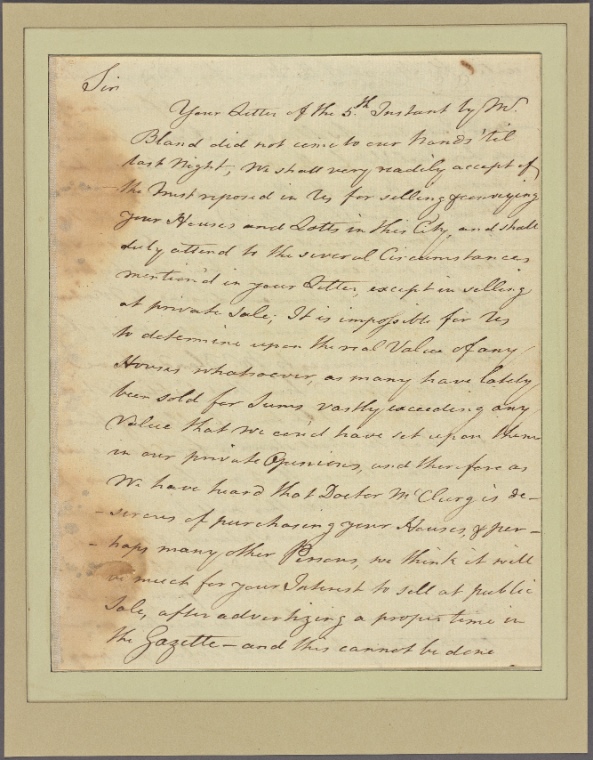 Sir
Your Letter of the 5th. Instant by Mr.
Bland did not come to our hands 'til
last Night, We shall very readily accept of
the trust reposed in Us for selling & conveying
your Houses and Lotts in this City, and shall
duly attend to the several Circumstances
mention'd in your Letter, except in selling
at private Sale; It is impossible for Us
to determine upon the real Value of any
Houses whatsoever, as many have lately
been sold for Sums vastly exceeding any
Value that we cou'd have set upon them
in our private Opinions, and therefore as
We have heard that Doctor McClurg is de-
-sirous of purchasing your Houses, & per-
-haps many other Persons, we think it will
be much for your Interest to sell at public
Sale, after advertizing a proper time in
the Gazette – and this cannot be done